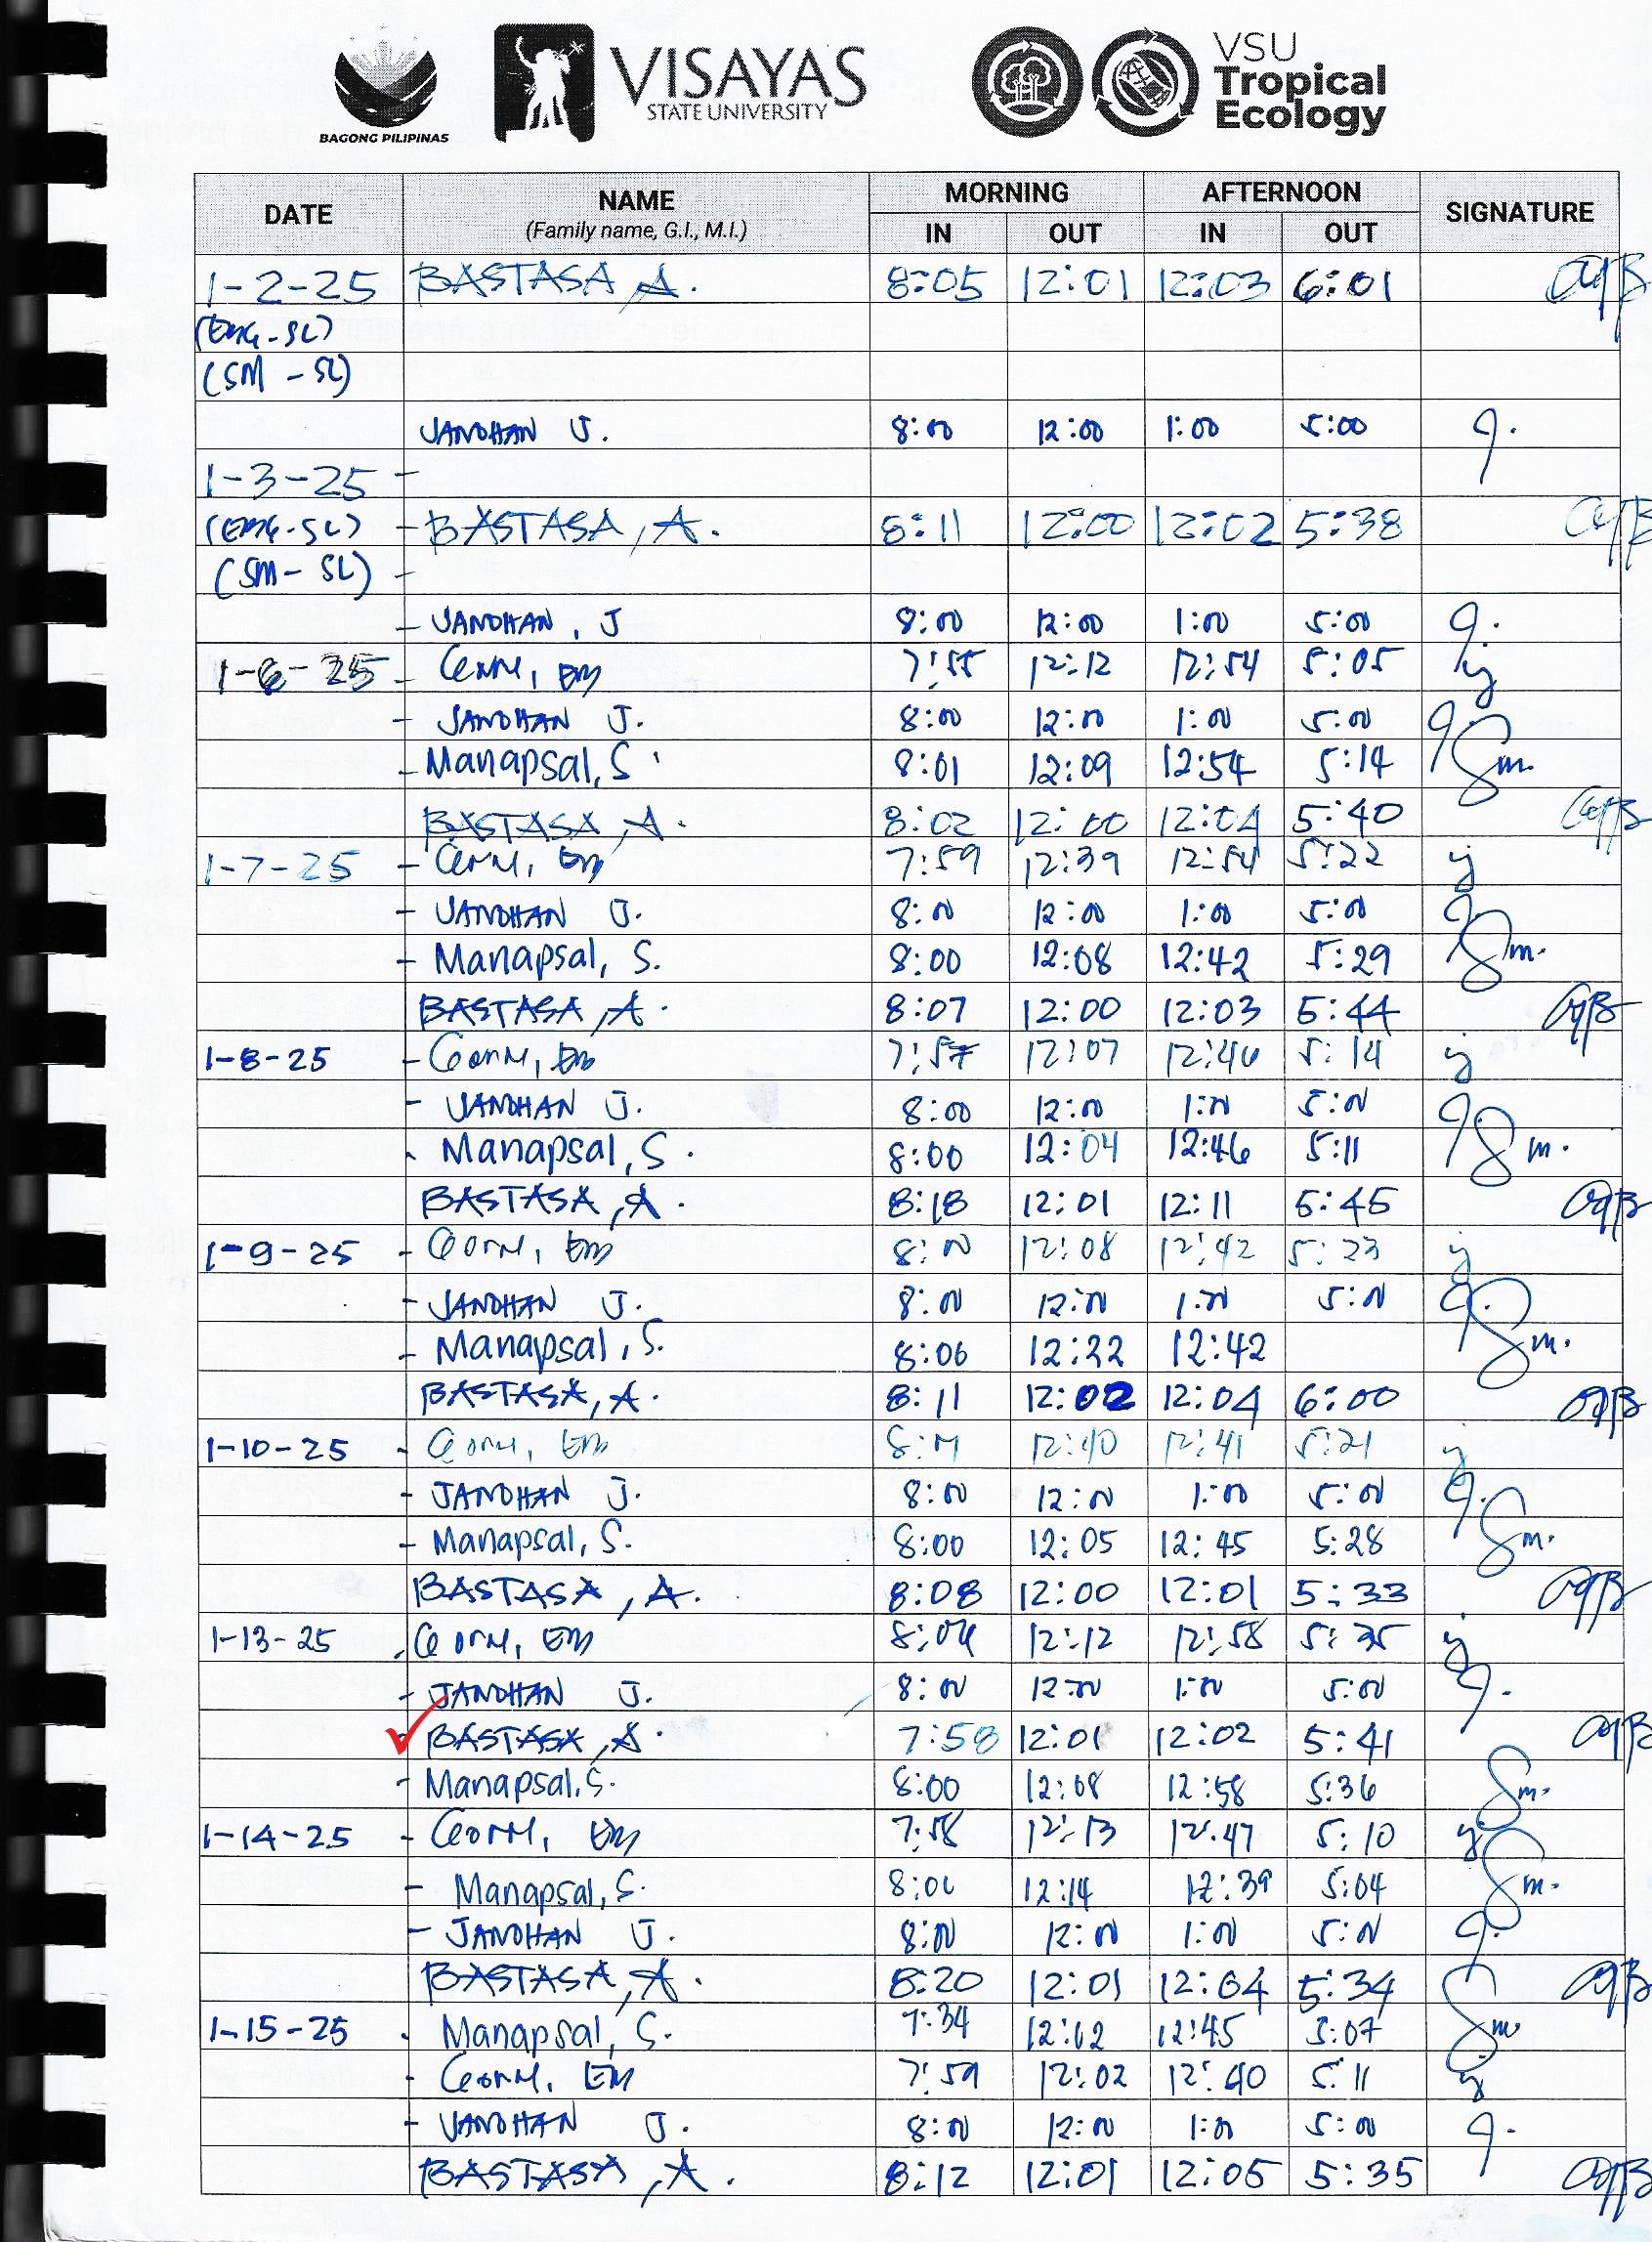 BAGONG PILIPINAS
VISAYAS
STATE UNIVERSITY
VSU
Tropical
Ecology
DATE NAME MORNING AFTERNOON SIGNATURE
(Family name, G.I., M.I.) IN OUT IN OUT
1-2-25 BASTASA, A. 8:05 12:01 12:03 6:01
(SM - SL)
JANDHAN J. 8:00 12:00 1:00 5:00
1-3-25 -
- BASTASA, A. 8:11 12:00 12:02 5:38
(SM - SL) -
- JANDHAN, J 8:00 12:00 1:00 5:00
1-6-25 - 7:55 12:12 12:54 5:05
- JANDHAN J. 8:00 12:00 1:00 5:00
- Manapsal, S. 8:01 12:09 12:54 5:14 Sm.
BASTASA, A. 8:02 12:00 12:04 5:40
1-7-25 - 7:59 12:39 12:54 5:22
- JANDHAN J. 8:00 12:00 1:00 5:00
- Manapsal, S. 8:00 12:08 12:42 5:29 Sm.
BASTASA, A. 8:07 12:00 12:03 5:44
1-8-25 - 7:57 12:07 12:46 5:14
- JANDHAN J. 8:00 12:00 1:00 5:00
- Manapsal, S. 8:00 12:04 12:46 5:11 Sm.
BASTASA, A. 8:18 12:01 12:11 5:45
1-9-25 - 8:00 12:08 12:42 5:23
- JANDHAN J. 8:00 12:00 1:00 5:00
- Manapsal, S. 8:06 12:22 12:42 Sm.
BASTASA, A. 8:11 12:02 12:04 6:00
1-10-25 - 12:40 12:41 5:21
- JANDHAN J. 8:00 12:00 1:00 5:00
- Manapsal, S. 8:00 12:05 12:45 5:28 Sm.
BASTASA, A. 8:08 12:00 12:01 5:33
1-13-25 12:12 12:58 5:35
- JANDHAN J. 8:00 12:00 1:00 5:00
- BASTASA, A. 7:58 12:01 12:02 5:41
- Manapsal, S. 8:00 12:08 12:58 5:36 Sm.
1-14-25 - 7:58 12:13 12:47 5:10
- Manapsal, S. 12:14 12:39 5:04 Sm.
- JANDHAN J. 8:00 12:00 1:00 5:00
BASTASA, A. 8:20 12:01 12:04 5:34
1-15-25 Manapsal, S. 7:34 12:02 12:45 5:07 Sm
- 7:59 12:02 12:40 5:11
- JANDHAN J. 8:00 12:00 1:00 5:00
BASTASA, A. 8:12 12:01 12:05 5:35